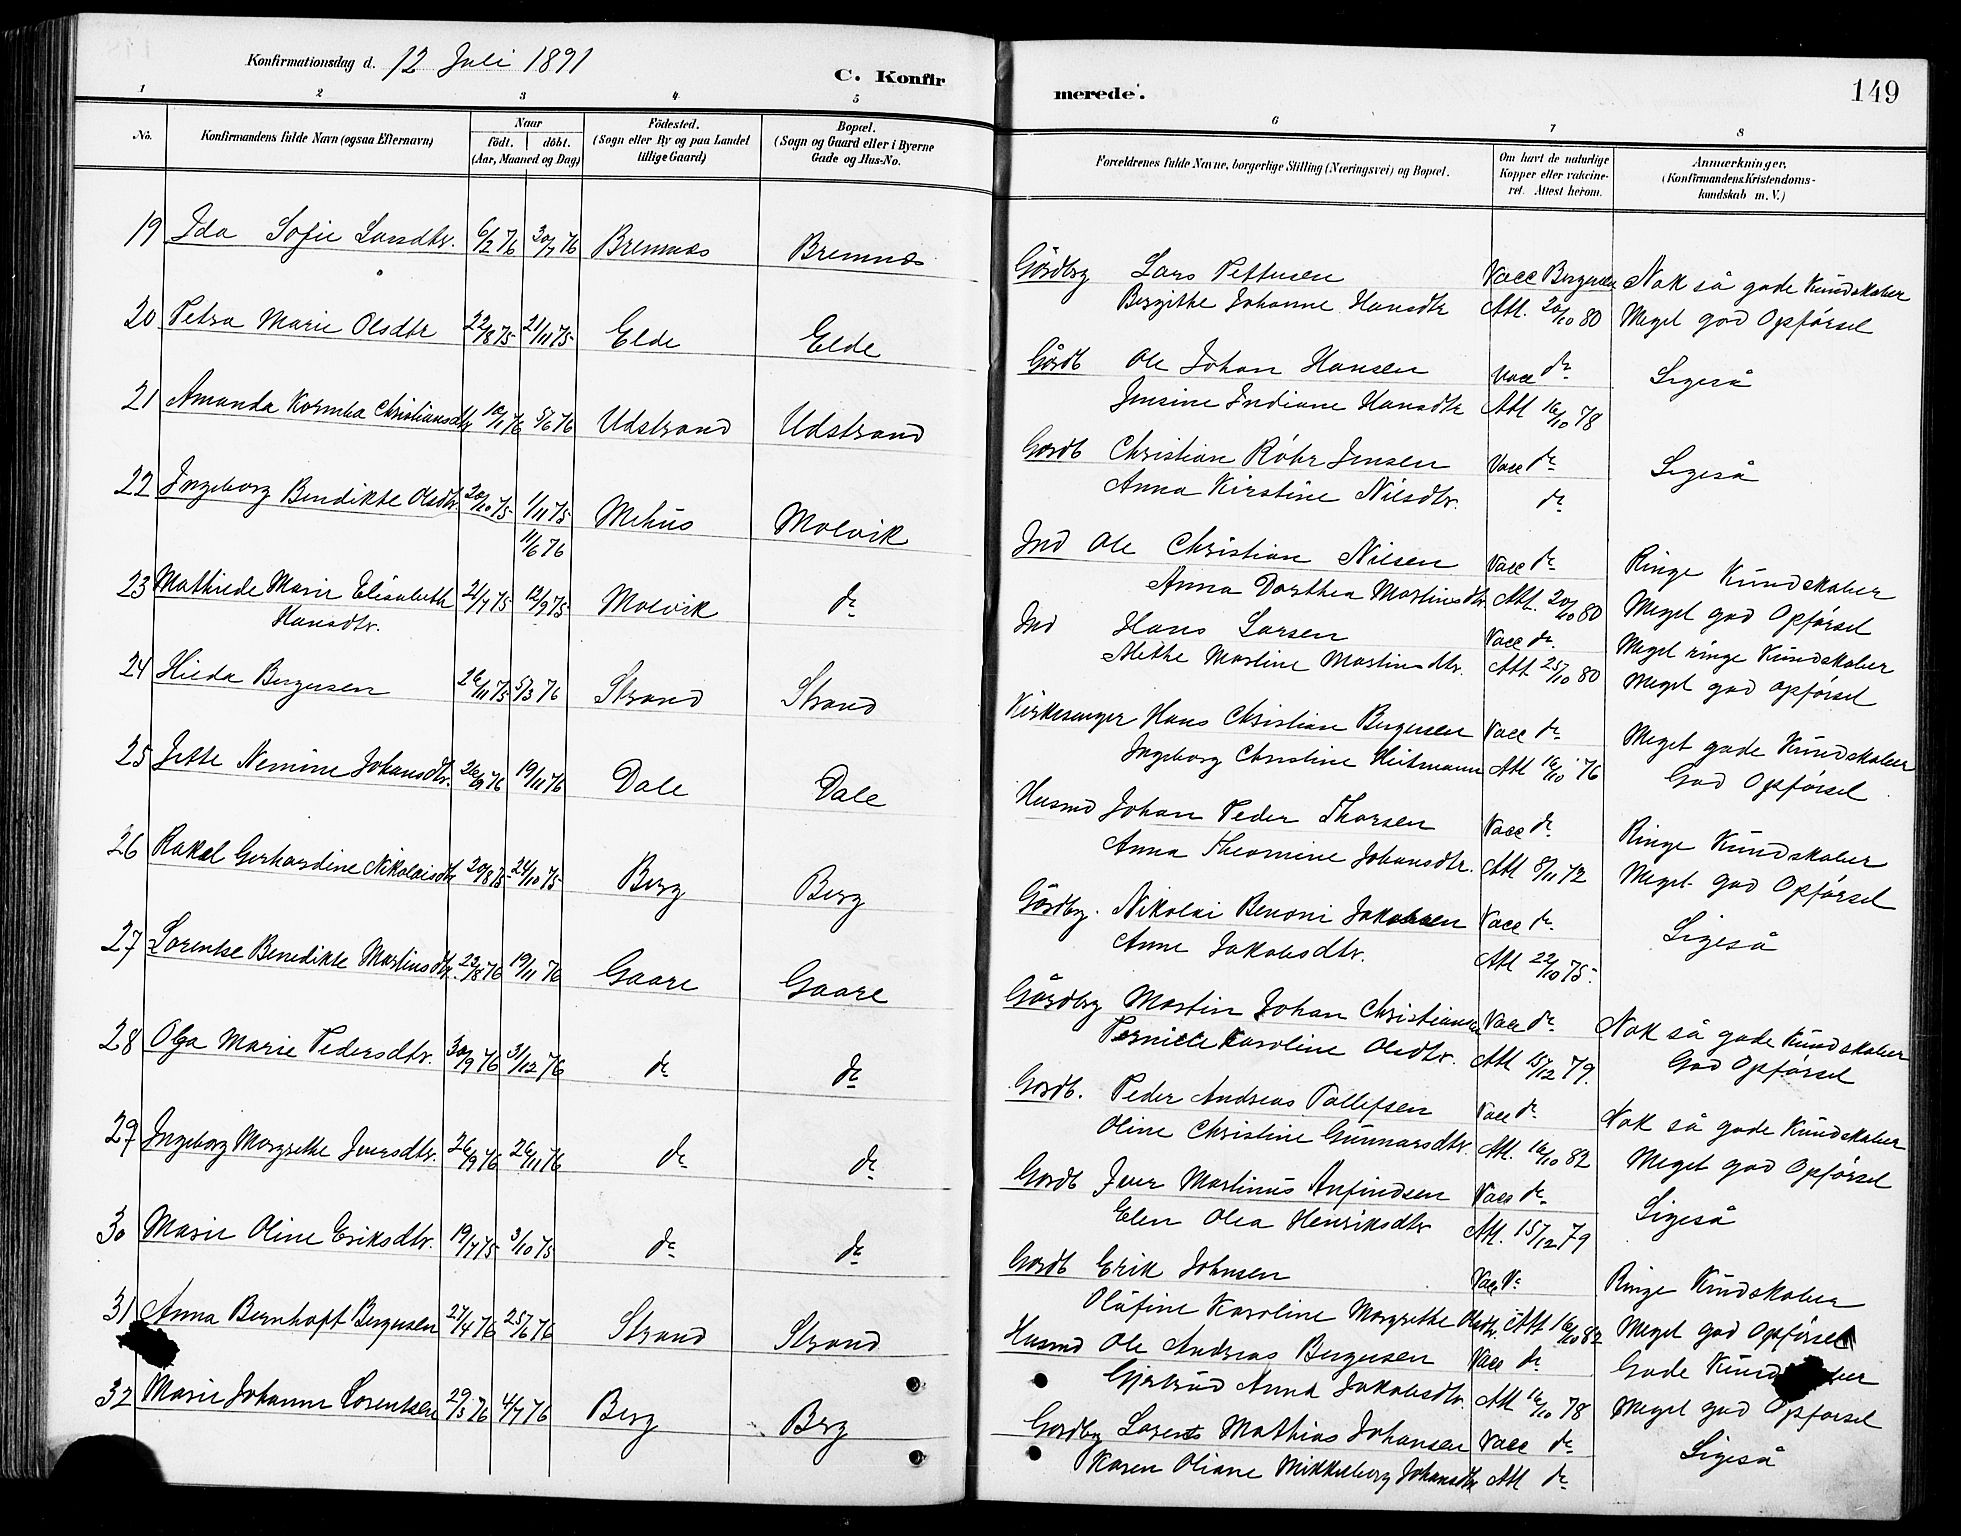 Konfirmationsdag d. 12 Juli 1891
C. Konfir
merede.
149
1 2 3 4 5 6 7 8
No.
Konfirmandens fulde Navn (ogsaa Efternavn)
Naar
født. | døbt.
(Aar, Maaned og Dag)
Fødested.
(Sogn eller By og paa Landet
tillige Gaard)
Bopæl.
(Sogn og Gaard eller i Byerne
Gade og Hus-No.
Forældrenes fulde Navne, borgerlige Stilling (Næringsvei) og Bopæl.
Om havt de naturlige
Kopper eller vakcine-
ret. Attest herom.
Anmærkninger.
(Konfirmandens Kristendoms-
kundskab m. V.)
19 Ida Sofie Larsdtr. 6/2 76 30/7 76 Bremnæs Bremnæs
Gårdbrg Lars Pettersen Vacc Bergersen Nok så gode Kundskaber
Bergithe Johanne Hansdtr Att. 20/10 80 Meget god Opførsel
20 Petra Marie Olsdtr 22/8 75 21/11 75 Elde Elde
Gårdb Ole Johan Hansen Vacc do Ligeså
Jensine Indiane Hansdtr Att 16/10 78
21 Amanda Christiansdtr 5/6 76 Udstrand Udstrand
Gardb Christian Røhr Jensen Vacc do Ligeså
Anna Kirstine Nilsdtr. do
22 Ingeborg Bendikte Olsdtr. 20/10 75 1/11 75 Mehus Molvik
11/6 76
Ind Ole Christian Nilsen Vacc do Ringe Kundskaber
Anna Dorthea Martinsdtr Att. 20/10 80 Meget god Opførsel
23 Mathilde Marie Elisabeth 21/7 75 12/9 75 Molvik do
Hansdtr.
Ind Hans Larsen Vacc do Meget ringe Kundskaber
Methe Martine Martinsdtr. Att 25/10 80 Meget god opførsel
24 Hilda Bergersen 26/11 75 5/3 76 Strand Strand
Kirkesanger Hans Christian Bergersen Vacc do Meget gode Kundskaber
Ingeborg Christine Heitmann Att 16/10 76 God Opførsel
25 Jette Nemine Johansdtr. 26/9 76 19/11 76 Dale Dale
Husmd Johan Peder Thorsen Vacc do Ringe Kundskaber
Anna Theomine Johansdtr. Att 8/11 72 Meget god Opførsel
26 Rakel Gerhardine Nikolaisdtr 20/8 75 24/10 75 Berg Berg
Gårdbrg. Nikolai Benoni Jakobsen Vacc do Ligeså
Anne Jakobsdtr. Att 22/10 75.
27 Lorentse Benedikte Martinsdtr. 23/8 76 19/11 76 Gaare Gaare
Gårdbrg Martin Johan Christiansen Vacc do Nok så gode Kundskaber
Pernille Karoline Olsdtr. Att 15/12 79. God Opførsel
28 Olga Marie Pedersdtr. 30/9 76 31/12 76 do do
Gardb. Peder Andreas Tollefsen Vacc do Nok så gode Kundskaber
Oline Christine Gunnarsdtr. Att. 16/10 82 Meget god Opførsel
29 Ingeborg Margrethe Iversdtr. 26/9 76 26/11 76 do do
Gardb Iver Martinus Anfindsen Vacc do Ligeså
Elen Olea Henriksdtr Att. 15/12 79
30 Marie Oline Eriksdtr. 19/7 75 3/10 75 do do
Gardb Erik Johnsen Vacc do Ringe Kundskaber
Olufine Karoline Margrethe Olsdtr. Att 16/10 82 Meget god Opførsel
31 Anna Bernhoft Bergersen 27/4 76 25/6 76 Strand Strand
Husmd Ole Andreas Bergersen Vacc do Gode Kundskaber
Gjertrud Anna Jakobsdtr. Att 16/10 78 Meget god Opførsel
32 Marie Johanne Lorentsen 29/5 76 4/7 76 Berg Berg
Gardbrg Lorents Mathias Johansen Vacc do Ligeså
Karen Oliane Mikkelborg Johansdtr Att do